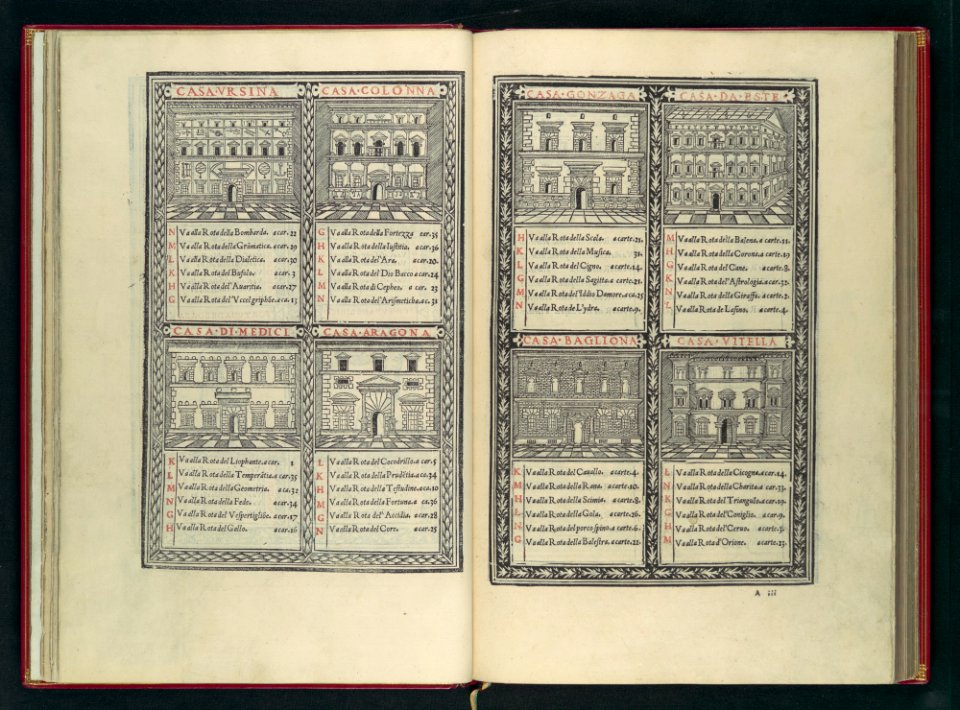 CASA·VRSINA
N Va alla Rota della Bombarda. a car. 22
M Va alla Rota della Grãmatica. a car. 29
L Va alla Rota della Dialetica. a car. 30
K Va alla Rota del Bufolo. a car. 3
H Va alla Rota del'Auartia. a car. 27
G Va alla Rota del'Vccel griphõe. a ca. 13
CASA·COLONNA
G Va alla Rota della Fortezza car. 35
H Va alla Rota della Iustitia. a car. 36
K Va alla Rota del'Ara. a car. 20.
L Va alla Rota del Dio Bacco a car. 24
M Va alla Rota di Cepheo. a car. 23
N Va alla Rota del'Arismeticha. ac. 31
CASA·DI·MEDICI
K Va alla Rota del Liophante. a car. 1
L Va alla Rota della Temperãtia. a car. 35
M Va alla Rota della Geometria. a ca. 32
N Va alla Rota della Fede. a car. 34
G Va alla Rota del Vespertigliõe. a car. 17
H Va alla Rota del Gallo. a car. 16
CASA·ARAGONA
L Va alla Rota del Cocodrillo. a car. 5
K Va alla Rota della Prudẽtia. a ca. 34
H Va alla Rota della Testudine. a ca. 10
M Va alla Rota della Fortuna. a ca. 26
G Va alla Rota del'Accidia. a car. 28
N Va alla Rota del Core. a car. 25
CASA·GONZAGA
H Va alla Rota della Scala. a carte. 21.
K Va alla Rota della Musica. 31.
L Va alla Rota del Cigno. a carte. 14.
G Va alla Rota della Sagitta. a carte. 21.
M Va alla Rota del'Iddio Damore. a ca. 25
N Va alla Rota de L'ydra. a carte. 9.
CASA·DA·ESTE
M Va alla Rota della Balena. a carte. 11.
H Va alla Rota della Corona. a carte. 19
G Va alla Rota del Cane. a carte. 8.
K Va alla Rota del'Astrologia. a car. 32.
N Va alla Rota della Giraffa. a carte. 2.
L Va alla Rota de Lasino. a carte. 4.
CASA·BAGLIONA
K Va alla Rota del Cauallo. a carte. 4.
M Va alla Rota della Rana. a carte. 10.
H Va alla Rota della Scimia. a carte. 8.
L Va alla Rota della Gola. a carte. 26.
N Va alla Rota del porco spino. a carte. 6.
G Va alla Rota della Balestra. a carte. 22.
CASA·VITELLA
L Va alla Rota della Cicogna. a car. 14.
N Va alla Rota della Charita. a car. 33.
K Va alla Rota del Triangulo. a car. 19.
G Va alla Rota del'Coniglio. a car. 9.
H Va alla Rota del'Ceruo. a car.
M Va alla Rota d'Orione. a car. 23.
A iii